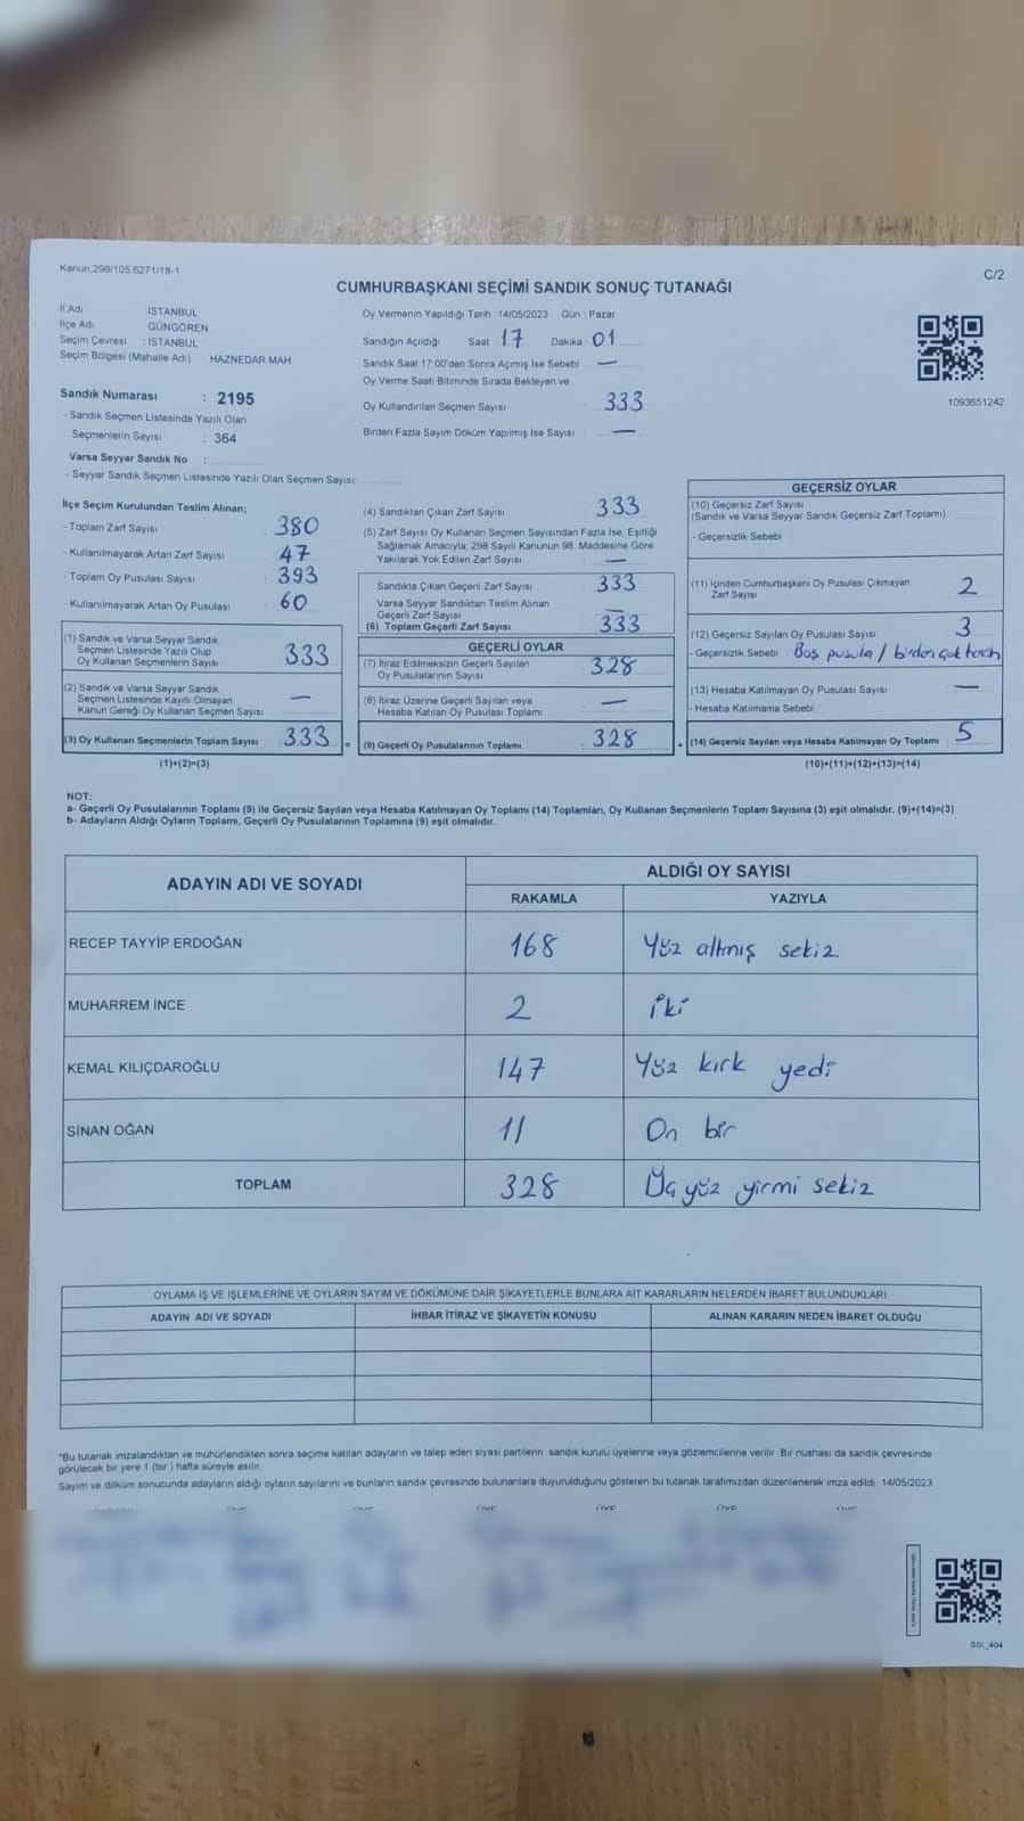 Kanun:298/105,6271/18-1
C/2
CUMHURBAŞKANI SEÇİMİ SANDIK SONUÇ TUTANAĞI
İl Adı İSTANBUL
İlçe Adı GÜNGÖREN
Seçim Çevresi : İSTANBUL
Seçim Bölgesi (Mahalle Adı) HAZNEDAR MAH
Sandık Numarası : 2195
- Sandık Seçmen Listesinde Yazılı Olan
Seçmenlerin Sayısı : 364
Varsa Seyyar Sandık No :
- Seyyar Sandık Seçmen Listesinde Yazılı Olan Seçmen Sayısı:
Oy Vermenin Yapıldığı Tarih : 14/05/2023 Gün : Pazar
Sandığın Açıldığı Saat 17 Dakika 01
Sandık Saat 17:00'den Sonra Açılmış İse Sebebi —
Oy Verme Saati Bitiminde Sırada Bekleyen ve
Oy Kullandırılan Seçmen Sayısı 333
Birden Fazla Sayım Döküm Yapılmış İse Sayısı —
1093651242
İlçe Seçim Kurulundan Teslim Alınan;
- Toplam Zarf Sayısı 380
- Kullanılmayarak Artan Zarf Sayısı 47
- Toplam Oy Pusulası Sayısı 393
- Kullanılmayarak Artan Oy Pusulası 60
(1) Sandık ve Varsa Seyyar Sandık
Seçmen Listesinde Yazılı Olup
Oy Kullanan Seçmenlerin Sayısı 333
(2) Sandık ve Varsa Seyyar Sandık
Seçmen Listesinde Kayıtlı Olmayan
Kanun Gereği Oy Kullanan Seçmen Sayısı —
(3) Oy Kullanan Seçmenlerin Toplam Sayısı 333
(1)+(2)=(3)
(4) Sandıktan Çıkan Zarf Sayısı 333
(5) Zarf Sayısı Oy Kullanan Seçmen Sayısından Fazla İse, Eşitliği
Sağlamak Amacıyla, 298 Sayılı Kanunun 98. Maddesine Göre
Yakılarak Yok Edilen Zarf Sayısı —
Sandıkta Çıkan Geçerli Zarf Sayısı 333
Varsa Seyyar Sandıktan Teslim Alınan
Geçerli Zarf Sayısı —
(6) Toplam Geçerli Zarf Sayısı 333
GEÇERLİ OYLAR
(7) İtiraz Edilmeksizin Geçerli Sayılan
Oy Pusulalarının Sayısı 328
(8) İtiraz Üzerine Geçerli Sayılan veya
Hesaba Katılan Oy Pusulası Toplamı —
(9) Geçerli Oy Pusulalarının Toplamı 328
GEÇERSİZ OYLAR
(10) Geçersiz Zarf Sayısı
(Sandık ve Varsa Seyyar Sandık Geçersiz Zarf Toplamı)
- Geçersizlik Sebebi
(11) İçinden Cumhurbaşkanı Oy Pusulası Çıkmayan
Zarf Sayısı 2
(12) Geçersiz Sayılan Oy Pusulası Sayısı 3
- Geçersizlik Sebebi : Boş pusula / birden çok tercih
(13) Hesaba Katılmayan Oy Pusulası Sayısı —
- Hesaba Katılmama Sebebi
(14) Geçersiz Sayılan veya Hesaba Katılmayan Oy Toplamı 5
(10)+(11)+(12)+(13)=(14)
NOT:
a- Geçerli Oy Pusulalarının Toplamı (9) ile Geçersiz Sayılan veya Hesaba Katılmayan Oy Toplamı (14) Toplamları, Oy Kullanan Seçmenlerin Toplam Sayısına (3) eşit olmalıdır. (9)+(14)=(3)
b- Adayların Aldığı Oyların Toplamı, Geçerli Oy Pusulalarının Toplamına (9) eşit olmalıdır.
ADAYIN ADI VE SOYADI
ALDIĞI OY SAYISI
RAKAMLA YAZIYLA
RECEP TAYYİP ERDOĞAN 168 Yüz altmış sekiz
MUHARREM İNCE 2 iki
KEMAL KILIÇDAROĞLU 147 Yüz kırk yedi
SİNAN OĞAN 11 On bir
TOPLAM 328 Üçyüz yirmi sekiz
OYLAMA İŞ VE İŞLEMLERİNE VE OYLARIN SAYIM VE DÖKÜMÜNE DAİR ŞİKAYETLERLE BUNLARA AİT KARARLARIN NELERDEN İBARET BULUNDUKLARI
ADAYIN ADI VE SOYADI İHBAR İTİRAZ VE ŞİKAYETİN KONUSU ALINAN KARARIN NEDEN İBARET OLDUĞU
*Bu tutanak imzalandıktan ve mühürlendikten sonra seçime katılan adayların ve talep eden siyasi partilerin sandık kurulu üyelerine veya gözlemcilerine verilir. Bir nüshası da sandık çevresinde
görülecek bir yere 1 (bir) hafta süreyle asılır.
Sayım ve döküm sonucunda adayların aldığı oyların sayılarını ve bunların sandık çevresinde bulunanlara duyurulduğunu gösteren bu tutanak tarafımızdan düzenlenerek imza edildi. 14/05/2023